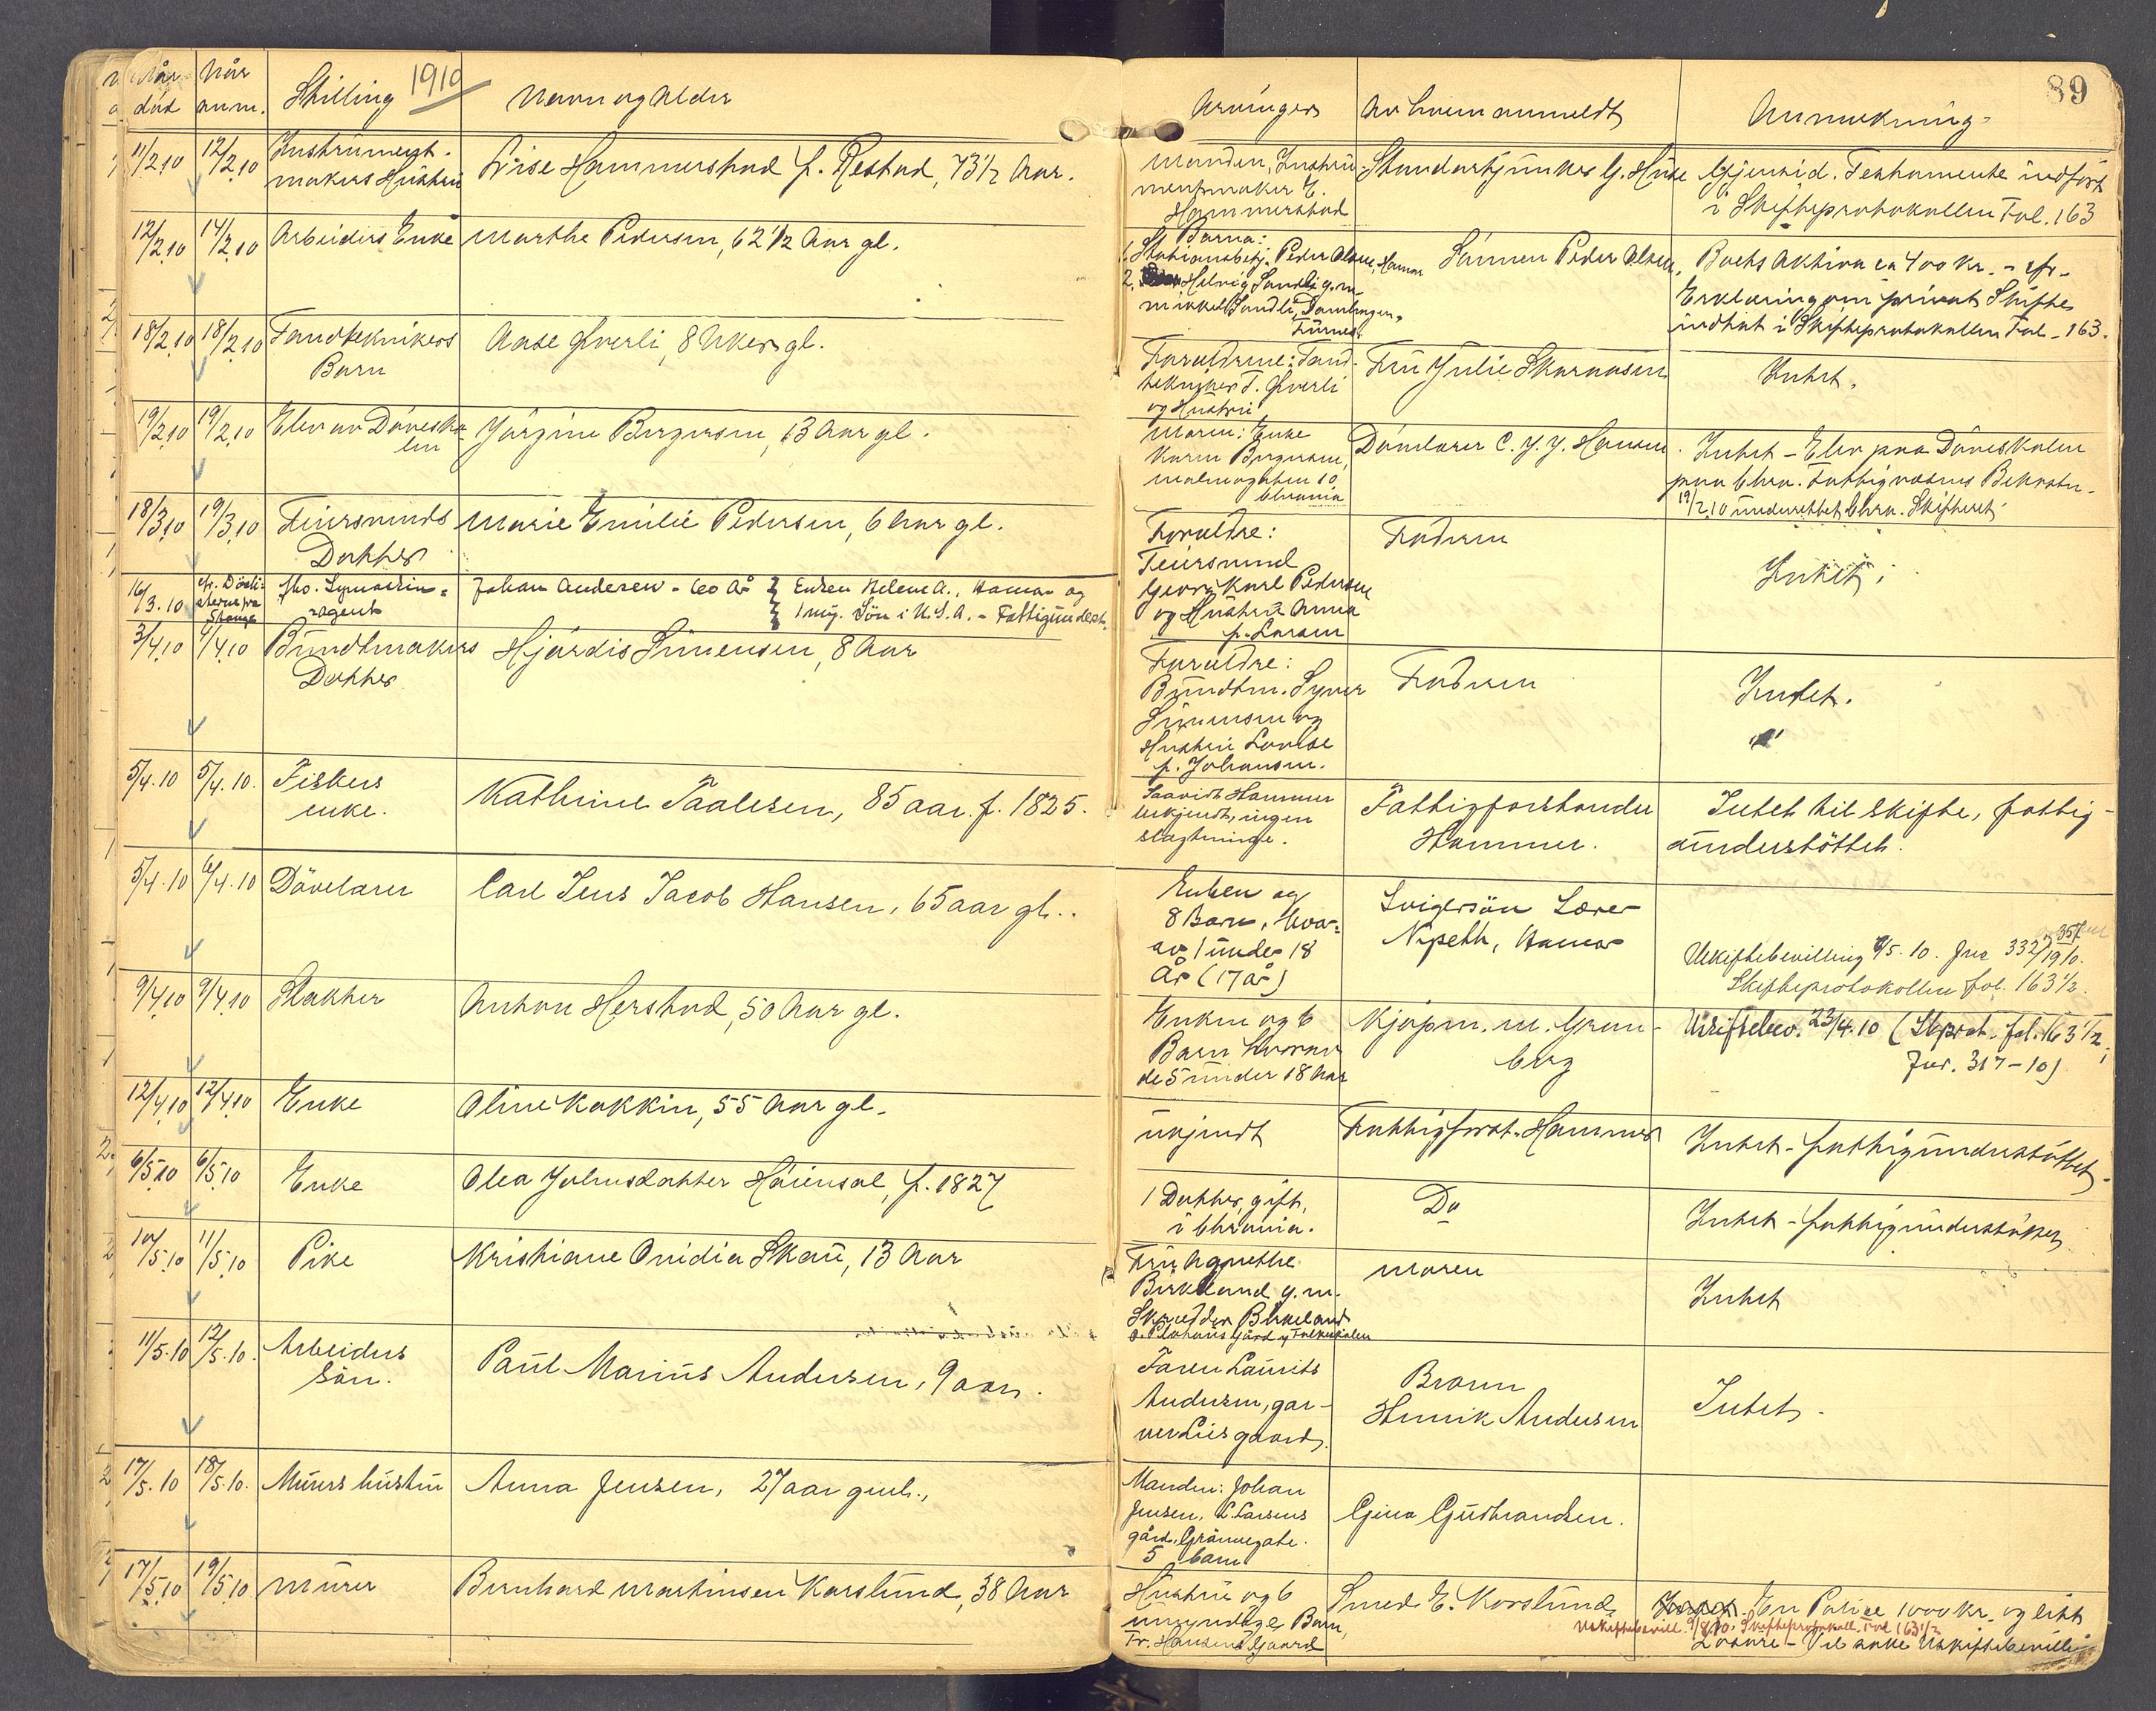 89
Når død
Når anm.
Stilling 1910
Navn og Alder
Arvinger
Av hvem anmeldt
Anmerkning
11/2.10 12/2.10 Instrument-
makers Hustru
Lise Hammerstad f. Restad, 73 1/2 Aar.
Manden, Instru-
mentmaker E.
Hammerstad
Standartjunker G. Huse
Gjensid. Testamente indført
i Skifteprotokollen Fol. 163
12/2.10 14/2.10 Arbeiders Enke
Marthe Pedersen, 62 1/2 Aar gl.
Barna:
1. Stationsbetj. Peder Olsen, Hamar
2. Helvig Sandli g. m.
Mikkel Sandli,
Furnes.
Sønnen Peder Olsen,
Boets Aktiva ca 400 Kr. - cfr.
Erklæring om privat Skifte
indtat i Skifteprotokollen Fol. 163.
18/2.10 18/2.10 Tandteknikers
Barn
Aase Øverli, 8 Uker gl.
Forældrene: Tand-
tekniker T. Øverli
og Hustru
Fru Julie Skaraasen
Intet.
19/2.10 19/2.10 Elev av Døvesko-
len
Jørgine Birgersen, 13 Aar gl.
Moren: Enke
Karen Birgersen,
Malmøgaten 10
Chrania
Døvelærer C. J. J. Hansen
Intet - Elev paa Døveskolen
paa Chra. Fattigvæsens Bekostn.
19/2 10 underrettet Chra. Skifteret
18/3.10 19/3.10 Feiersvends
Datter
Marie Emilie Pedersen, 6 Aar gl.
Forældre:
Feiersvend
Georg Karl Pedersen
og Hustru Anna
f. Larsen
Faderen
Intet.
16/3.10 cfr. Dødsli-
sterne fra
Stange
fho. Symaskin-
agent
Johan Andersen - 60 År } Enken Helene A., Hamar og
1 myg. Søn i U.S.A. - Fattigunderst.
3/4.10 4/4.10 Bundtmakers
Datter
Hjørdis Simensen, 8 Aar
Forældre:
Bundtm. Syver
Simensen og
Hustru Lovise
f. Johansen.
Faderen
Intet.
"
5/4.10 5/4.10. Fiskers
enke.
Kathrine Paalesen, 85 aar. f. 1825.
Saavidt Hammer
bekjendt, ingen
slægtninge.
Fattigforstander
Hammer.
Intet til skifte, fattig-
understøttet.
5/4.10 6/4.10 Døvelærer
Carl Jens Jacob Hansen, 65 aar gl..
Enken og
8 Barn, hvor-
av 1 under 18
År (17 år)
Svigersøn Lærer
Nipeth, Hamar
Uskiftebevilling 7/5.10. Jnr 332/1910.
Skifteprotokollen fol. 163 1/2.
9/4.10 9/4.10 Slakter
Anton Herstad, 50 Aar gl.
Enken og 6
Barn hvorav
de 5 under 18 Aar
Kjøpm. M. Gran-
berg
Uskiftebev. 23/4.10 (Skprot. fol. 163 1/2,
Jnr. 317-10)
12/4.10 12/4.10 Enke
Oline Kokkin, 55 Aar gl.
ukjendt
Fattigforst. Hammer
Intet - fattigunderstøttet.
6/5.10 6/5.10 Enke
Olea Johnsdatter Høiensal, f. 1827
1 Datter, gift,
i Chrania.
Do
Intet - fattigunderstøttet
10/5.10 11/5.10 Pike
Kristiane Ovidia Skau, 13 Aar
Fru Agnethe
Birkeland g. m.
Skrædder Birkeland
Moren
Intet
11/5.10 12/5.10. Arbeiders
søn.
Paul Marius Andersen, 9 aar.
Faren Laurits
Andersen, gar-
ver Liesgaard.
Broren
Henrik Andersen
Intet.
17/5.10 18/5.10. Murers hustru
Anna Jensen, 27 aar gml.,
Manden: Johan
Jensen, L. Larsens
gård, Grønnegate.
5 barn
Gina Gudbrandsen.
17/5.10 19/5.10 Murer
Bernhard Martinsen Korslund, 38 Aar
Hustru og 6
umyndige Barn,
Fr. Hansens Gaard
Smed E. Korslund
En Police 1000 kr. og litt
Uskiftebevill. 9/8 10. Skifteprotokoll Fol 163 1/2
Løsøre - Vil søke Uskiftebevilling